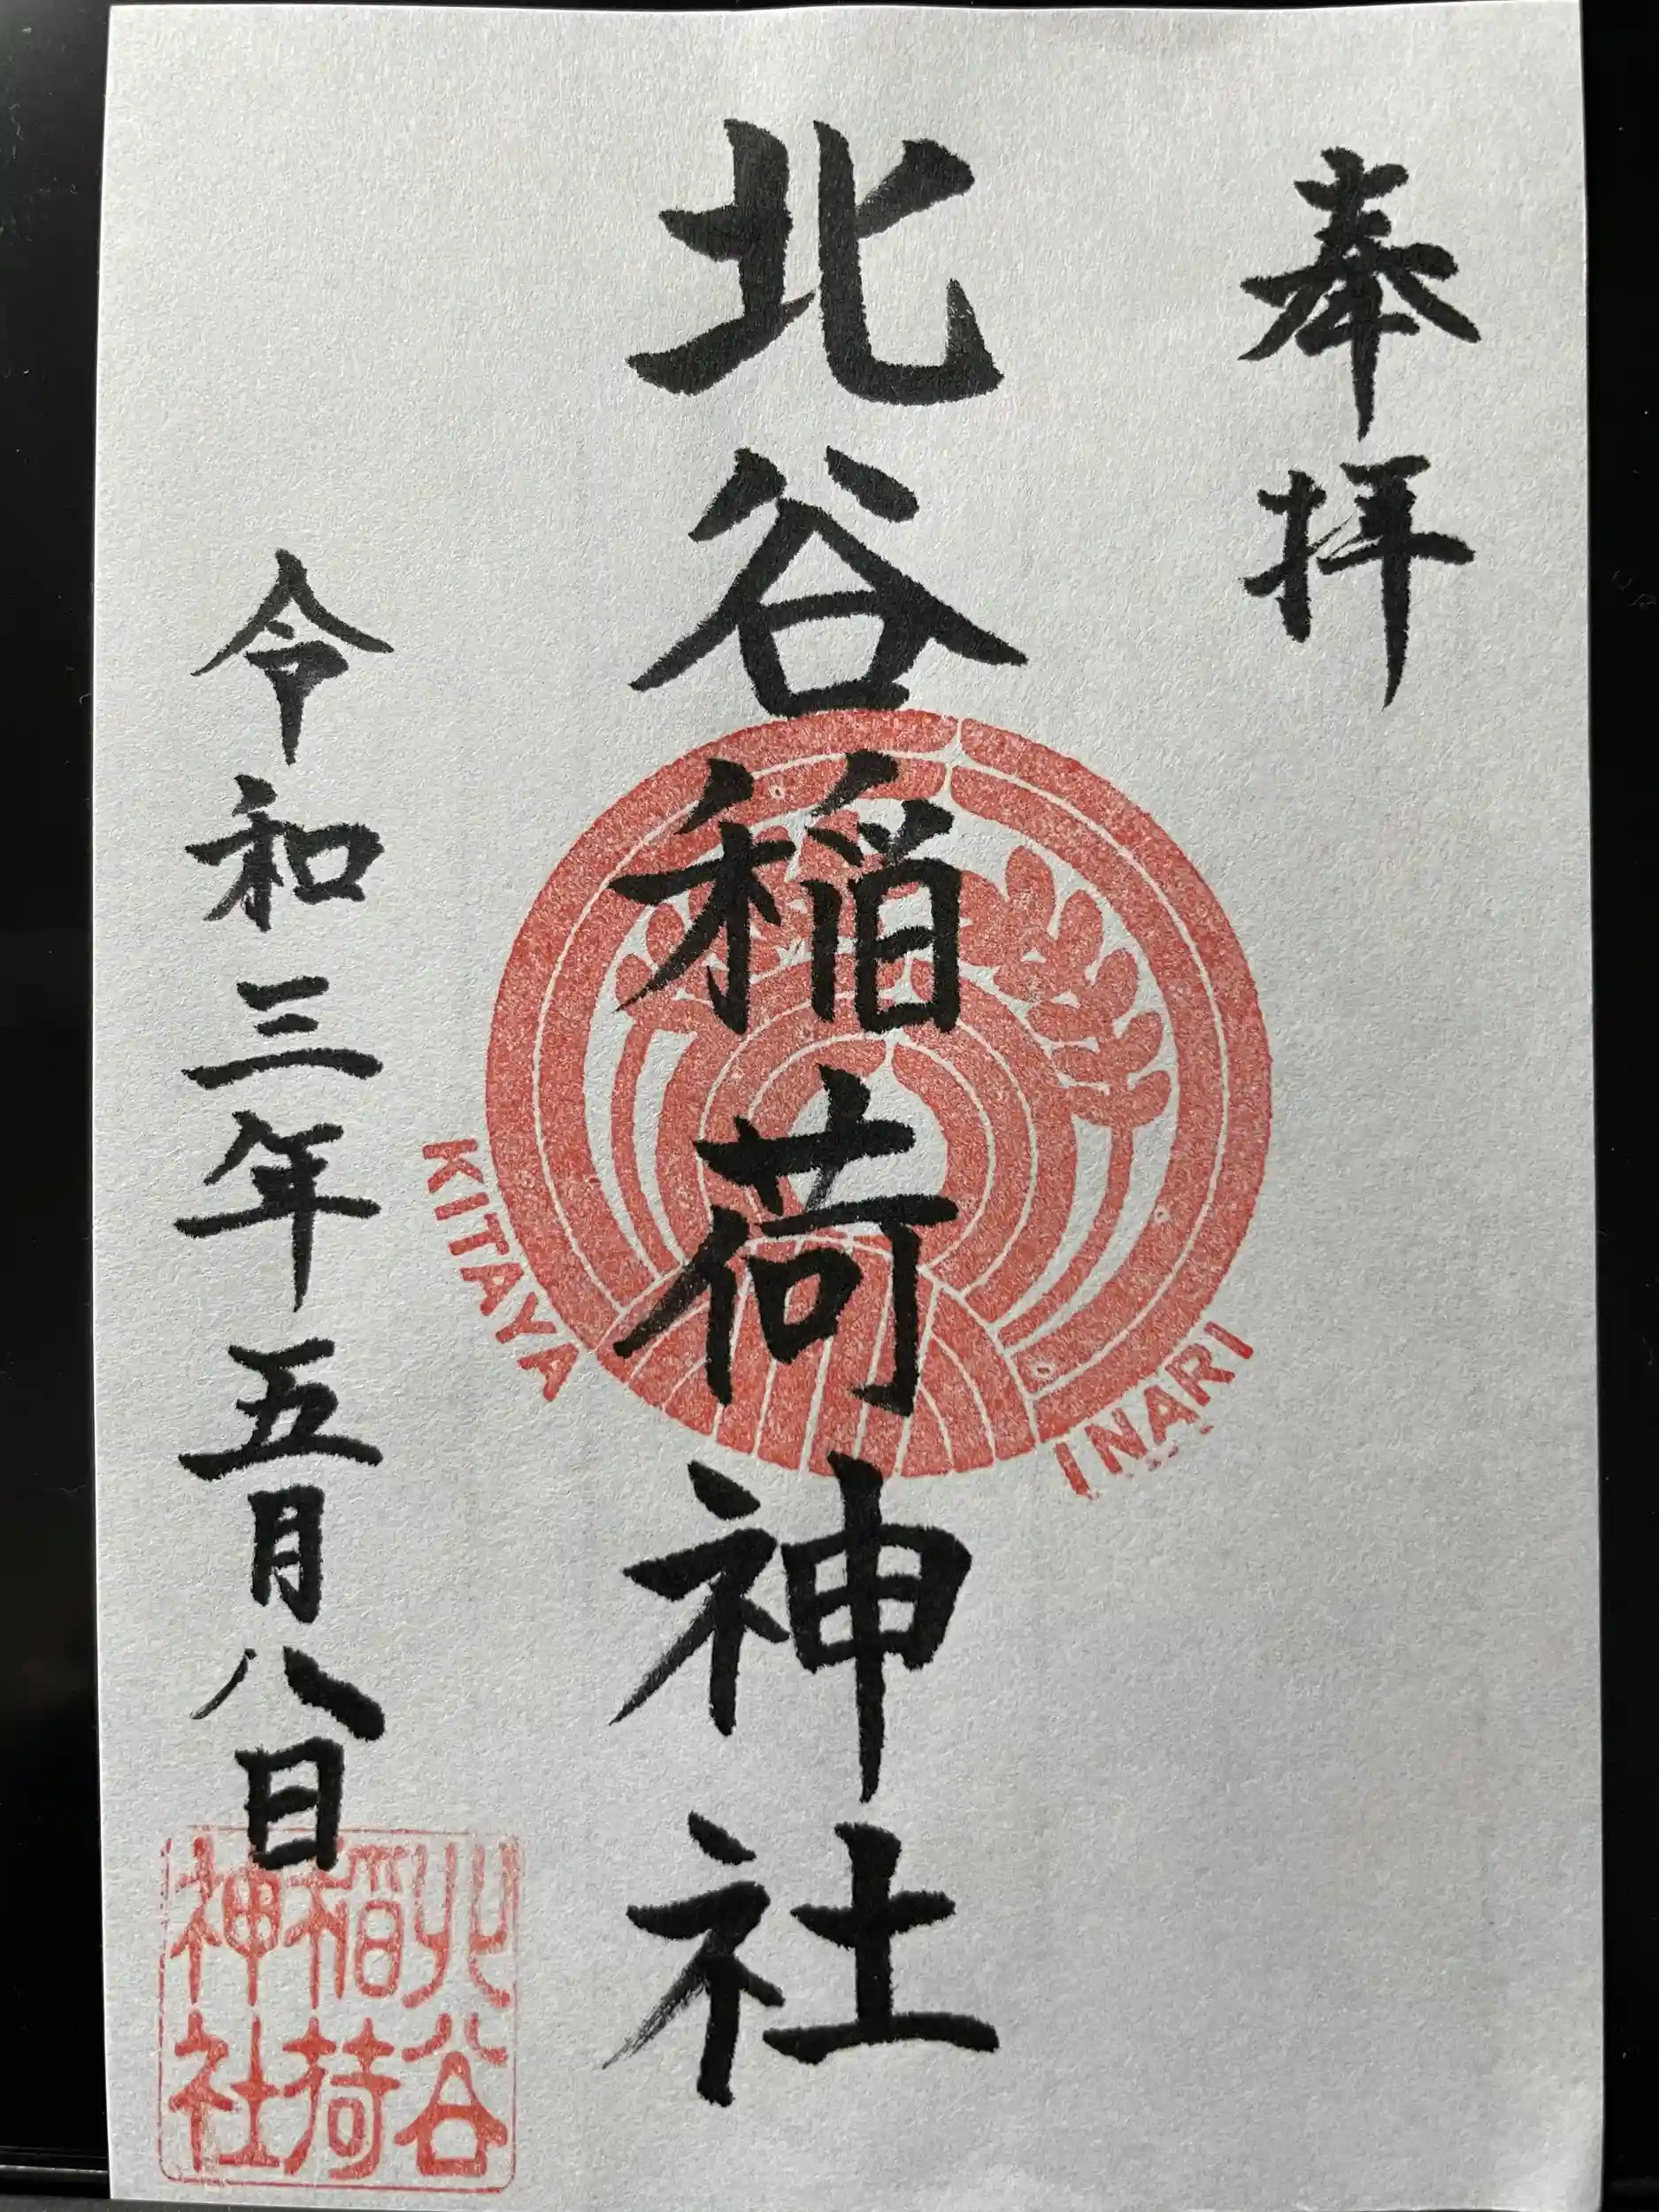 奉拝
北谷稲荷神社
令和三年五月八日
KITAYA INARI
北谷
稲荷
神社